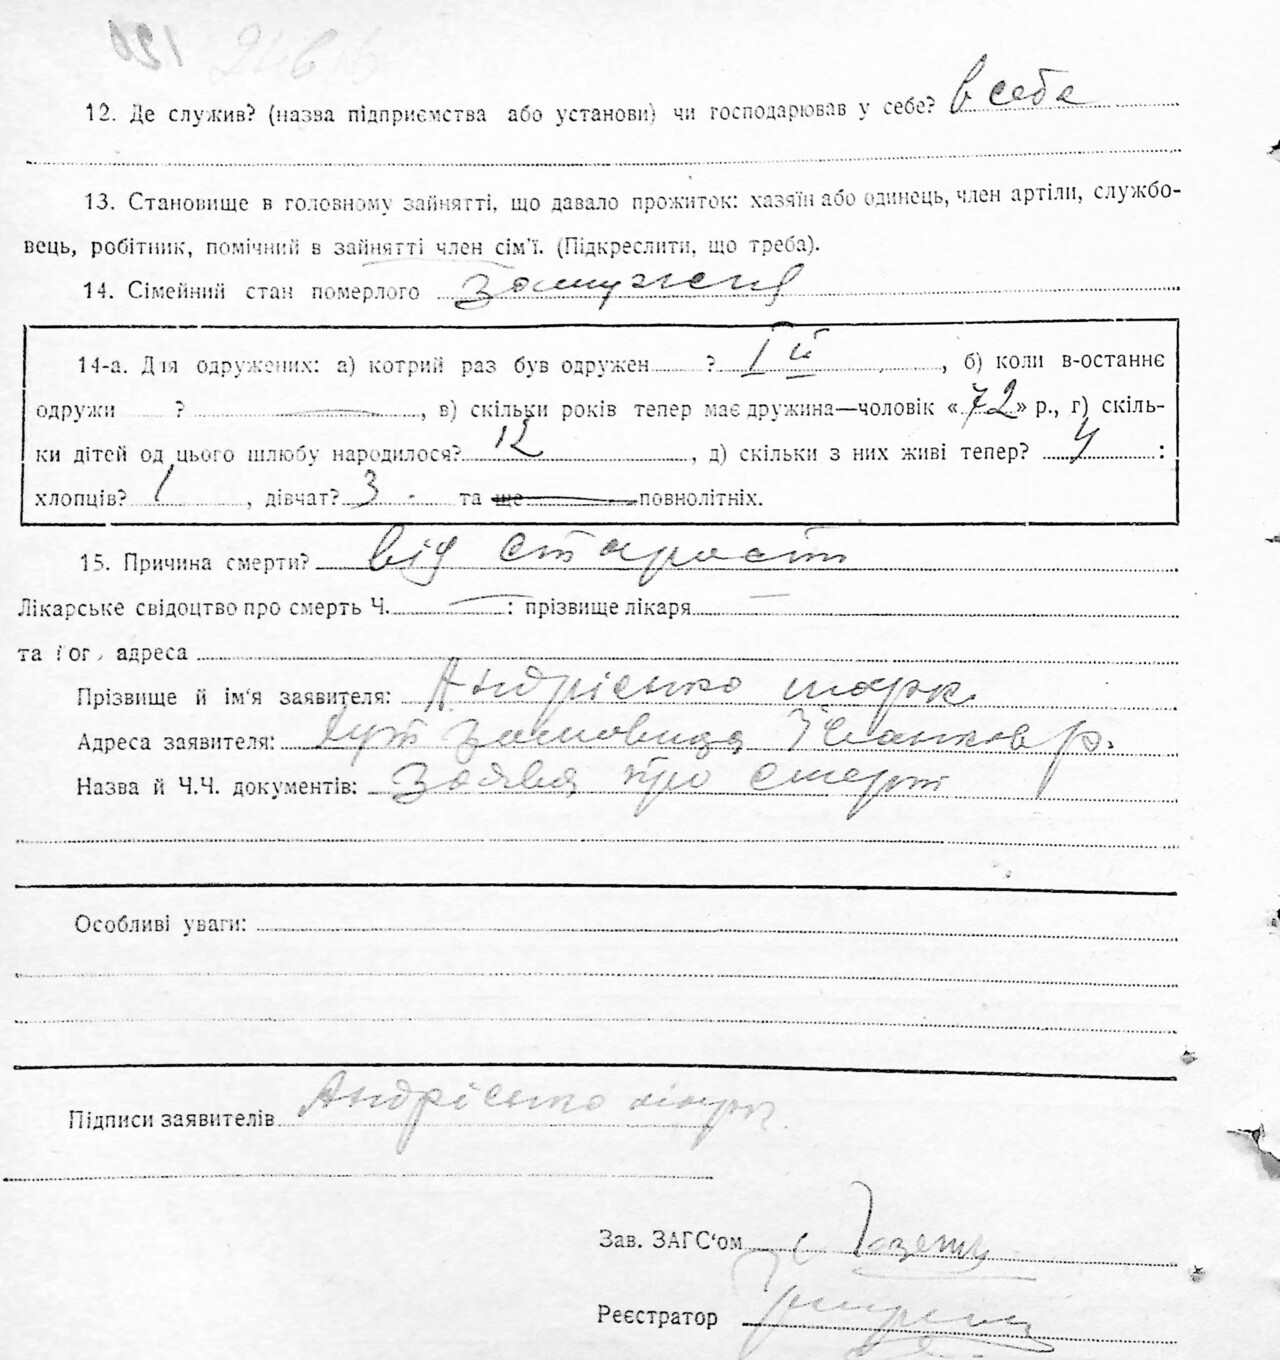 12. Де служив? (назва підприємства або установи) чи господарював у себе? в себе
13. Становище в головному зайнятті, що давало прожиток: хазяїн або одинець, член артіли, службо-
вець, робітник, помічний в зайнятті член сім'ї. (Підкреслити, що треба).
14. Сімейний стан померлого замужня
14-а. Для одружених: а) котрий раз був одружен ? І й, б) коли в-останнє
одружи ? —, в) скільки років тепер має дружина—чоловік «72» р., г) скіль-
ки дітей од цього шлюбу народилося? 12, д) скільки з них живі тепер? 4 :
хлопців? 1, дівчат? 3 та ще повнолітніх.
15. Причина смерти? від старости
Лікарське свідоцтво про смерть Ч. — : прізвище лікаря —
та адреса
Прізвище й ім'я заявителя: Андрієнко марк
Адреса заявителя: хут
Назва й Ч.Ч. документів: заява про смерт
Особливі уваги:
Підписи заявителів Андрієнко
Зав. ЗАГС'ом
Реєстратор